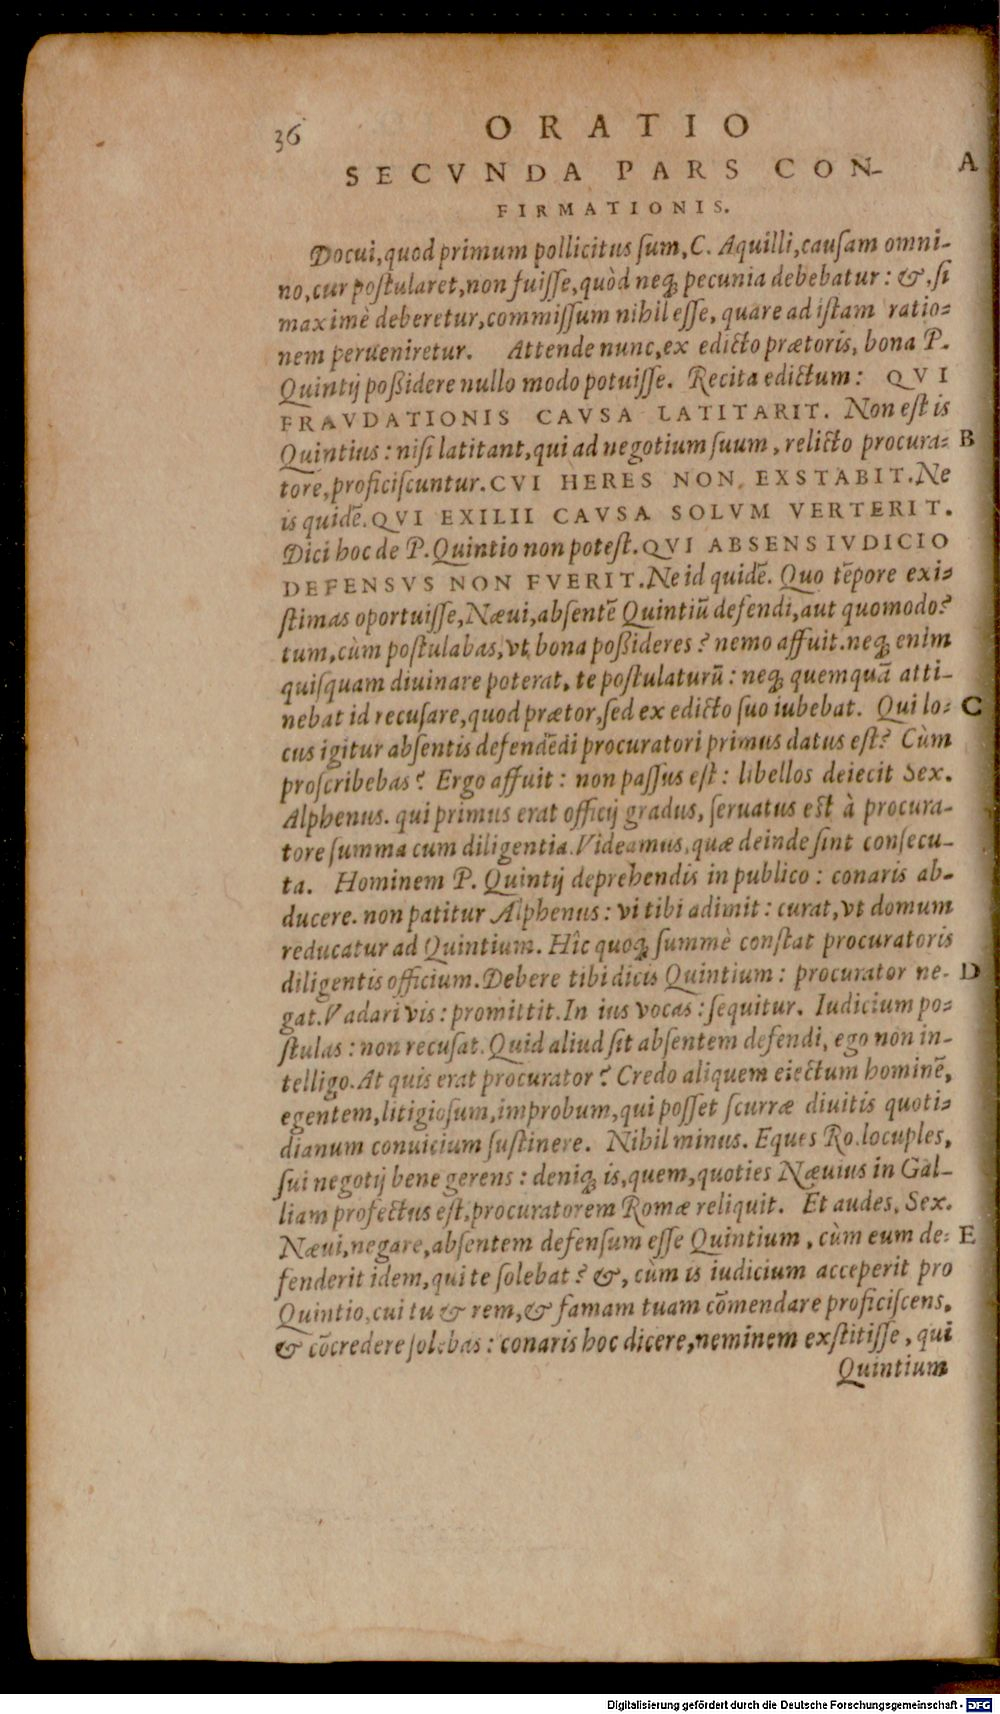 36 ORATIO
SECVNDA PARS CON- A
FIRMATIONIS.
Docui, quod primum pollicitus sum, C. Aquilli, causam omni-
no, cur postularet, non fuisse, quòd neq; pecunia debebatur: &, si
maximè deberetur, commissum nihil esse, quare ad istam ratio-
nem perueniretur. Attende nunc, ex edicto prætoris, bona P.
Quintij poßidere nullo modo potuisse. Recita edictum: QVI
FRAVDATIONIS CAVSA LATITARIT. Non est is
Quintius: nisi latitant, qui ad negotium suum, relicto procura- B
tore, proficiscuntur. CVI HERES NON EXSTABIT. Ne
is quidē. QVI EXILII CAVSA SOLVM VERTERIT.
Dici hoc de P. Quintio non potest. QVI ABSENS IVDICIO
DEFENSVS NON FVERIT. Ne id quidē. Quo tēpore exi-
stimas oportuisse, Næui, absentē Quintiū defendi, aut quomodo?
tum, cùm postulabas, vt bona poßideres? nemo affuit. neq; enim
quisquam diuinare poterat, te postulaturū: neq; quemquā atti-
nebat id recusare, quod prætor, sed ex edicto suo iubebat. Qui lo- C
cus igitur absentis defendēdi procuratori primus datus est? Cùm
proscribebas? Ergo affuit: non passus est: libellos deiecit Sex.
Alphenus. qui primus erat officij gradus, seruatus est à procura-
tore summa cum diligentia. Videamus, quæ deinde sint consecu-
ta. Hominem P. Quintij deprehendis in publico: conaris ab-
ducere. non patitur Alphenus: vi tibi adimit: curat, vt domum
reducatur ad Quintium. Hîc quoq; summè constat procuratoris
diligentis officium. Debere tibi dicis Quintium: procurator ne- D
gat. Vadari vis: promittit. In ius vocas: sequitur. Iudicium po-
stulas: non recusat. Quid aliud sit absentem defendi, ego non in-
telligo. At quis erat procurator? Credo aliquem eiectum hominē,
egentem, litigiosum, improbum, qui posset scurræ diuitis quoti-
dianum conuicium sustinere. Nihil minus. Eques Ro. locuples,
sui negotij bene gerens: deniq; is, quem, quoties Næuius in Gal-
liam profectus est, procuratorem Romæ reliquit. Et audes, Sex.
Næui, negare, absentem defensum esse Quintium, cùm eum de- E
fenderit idem, qui te solebat? &, cùm is iudicium acceperit pro
Quintio, cui tu & rem, & famam tuam cōmendare proficiscens,
& cōcredere solebas: conaris hoc dicere, neminem exstitisse, qui
Quintium
Digitalisierung gefördert durch die Deutsche Forschungsgemeinschaft - DFG